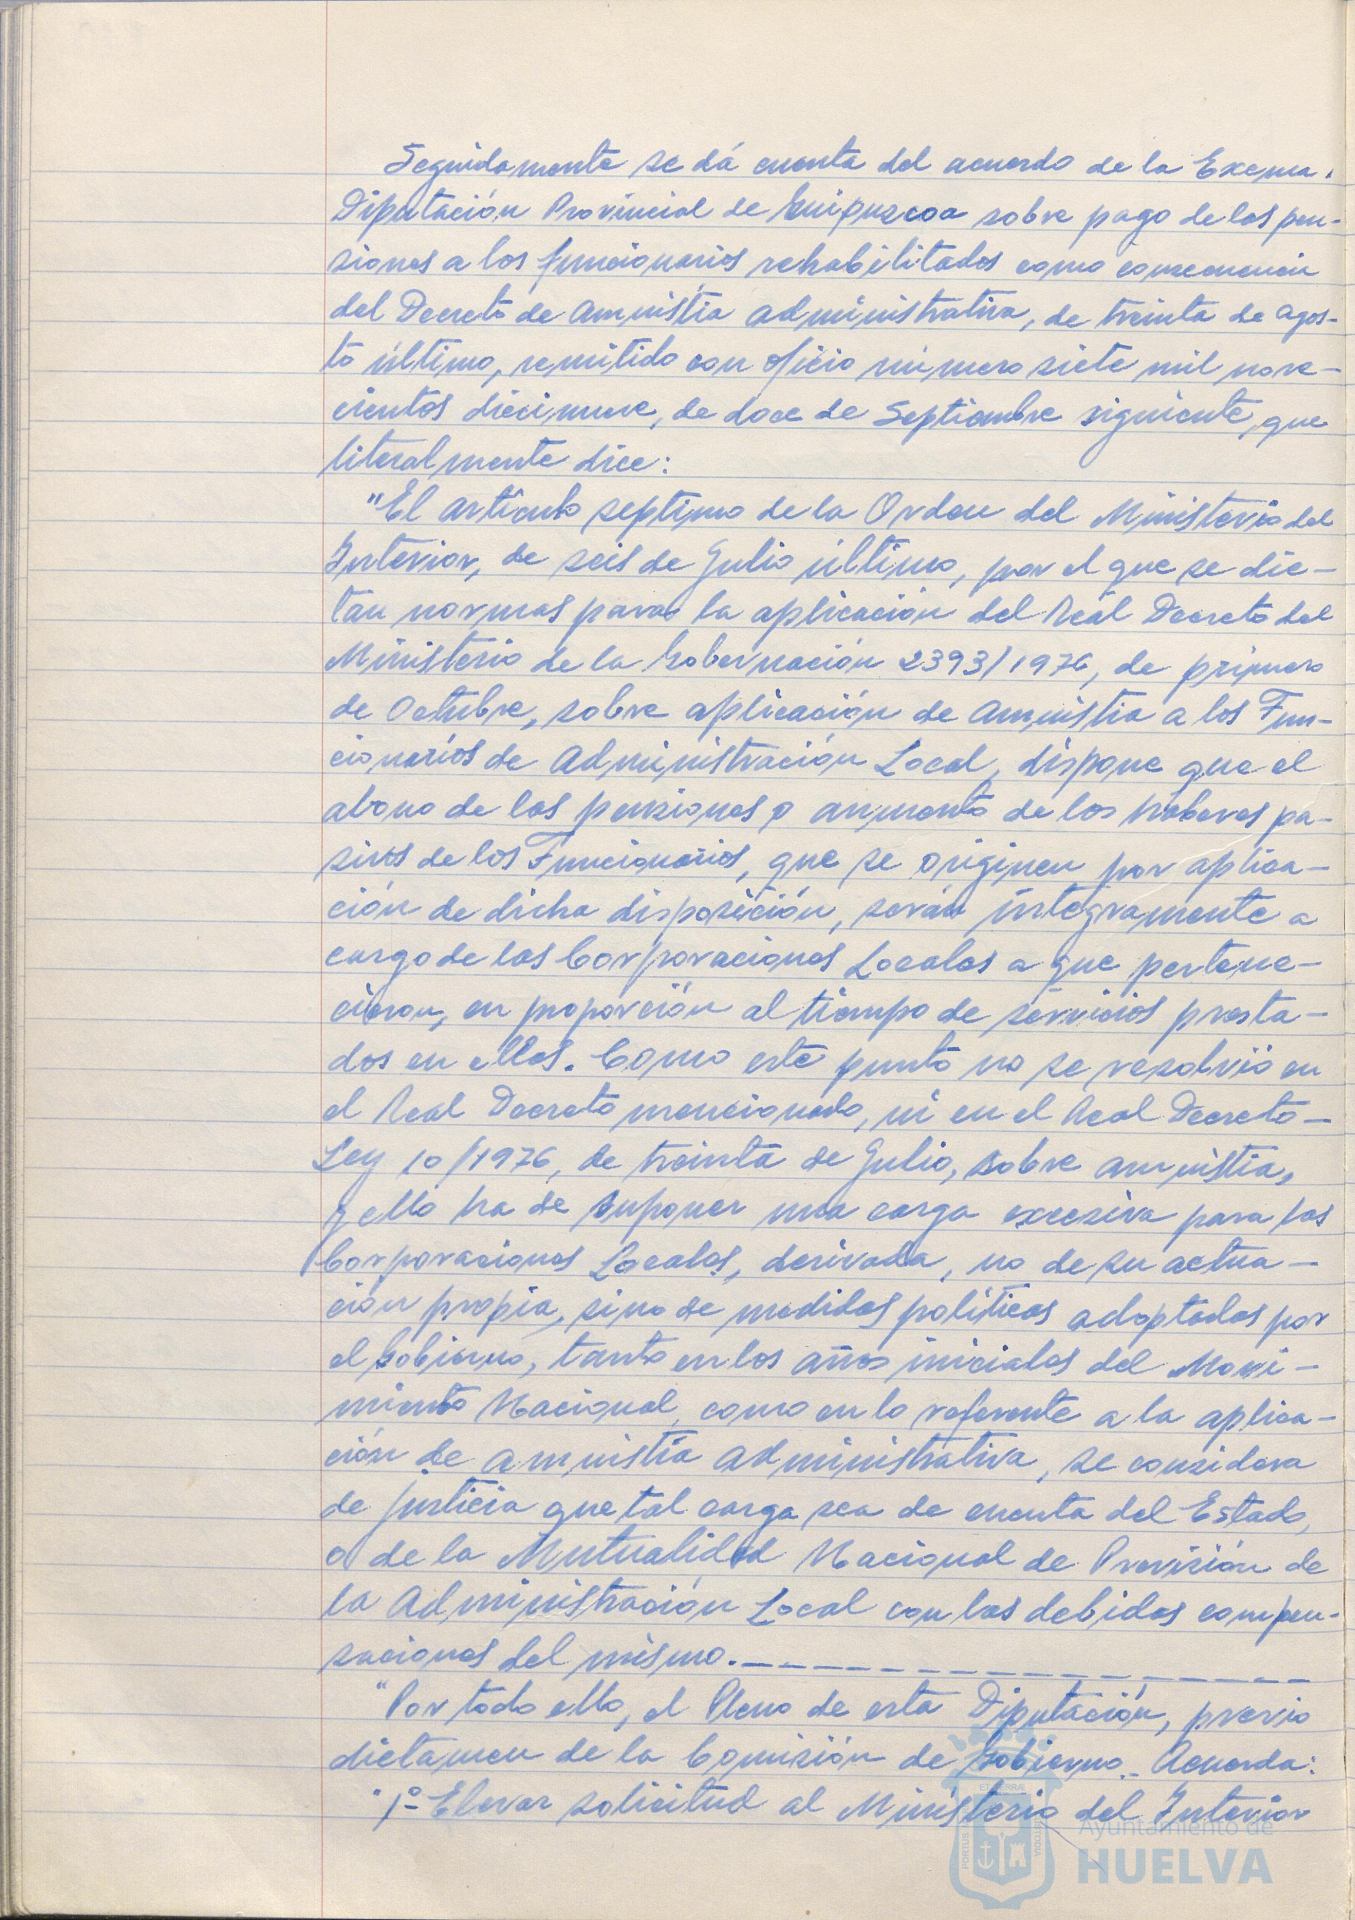 Seguidamente se dá cuenta del acuerdo de la Excma.
Diputación Provincial de Guipuzcoa sobre pago de las pen-
siones a los funcionarios rehabilitados como consecuencia
del Decreto de Amnistia administrativa, de treinta de agos-
to último, remitido con oficio número siete mil nove-
cientos diecinueve, de doce de Septiembre siguiente, que
literalmente dice:
"El artículo septimo de la Orden del Ministerio del
Interior, de seis de Julio último, por el que se dic-
tan normas para la aplicación del Real Decreto del
Ministerio de la Gobernación 2393/1976, de primero
de Octubre, sobre aplicación de amnistia a los Fun-
cionarios de Administración Local, dispone que el
abono de las pensiones o aumento de los haberes pa-
sivos de los Funcionarios, que se originen por aplica-
ción de dicha disposición, serán integramente a
cargo de las Corporaciones Locales a que pertene-
cieron, en proporción al tiempo de servicios presta-
dos en ellas. Como este punto no se resolvió en
el Real Decreto mencionado, ni en el Real Decreto-
Ley 10/1976, de treinta de Julio, sobre amnistia,
y ello ha de suponer una carga excesiva para las
Corporaciones Locales, derivada, no de su actua-
ción propia, sino de medidas políticas adoptadas por
el Gobierno, tanto en los años iniciales del Movi-
miento Nacional, como en lo referente a la aplica-
ción de amnistía administrativa, se considera
de justicia que tal carga sea de cuenta del Estado,
o de la Mutualidad Nacional de Previsión de
la Administración Local con las debidas compen-
saciones del mismo.
"Por todo ello, el Pleno de esta Diputación, previo
dictamen de la Comisión de Gobierno.- Acuerda:
"1º- Elevar solicitud al Ministerio del Interior
Ayuntamiento de
HUELVA